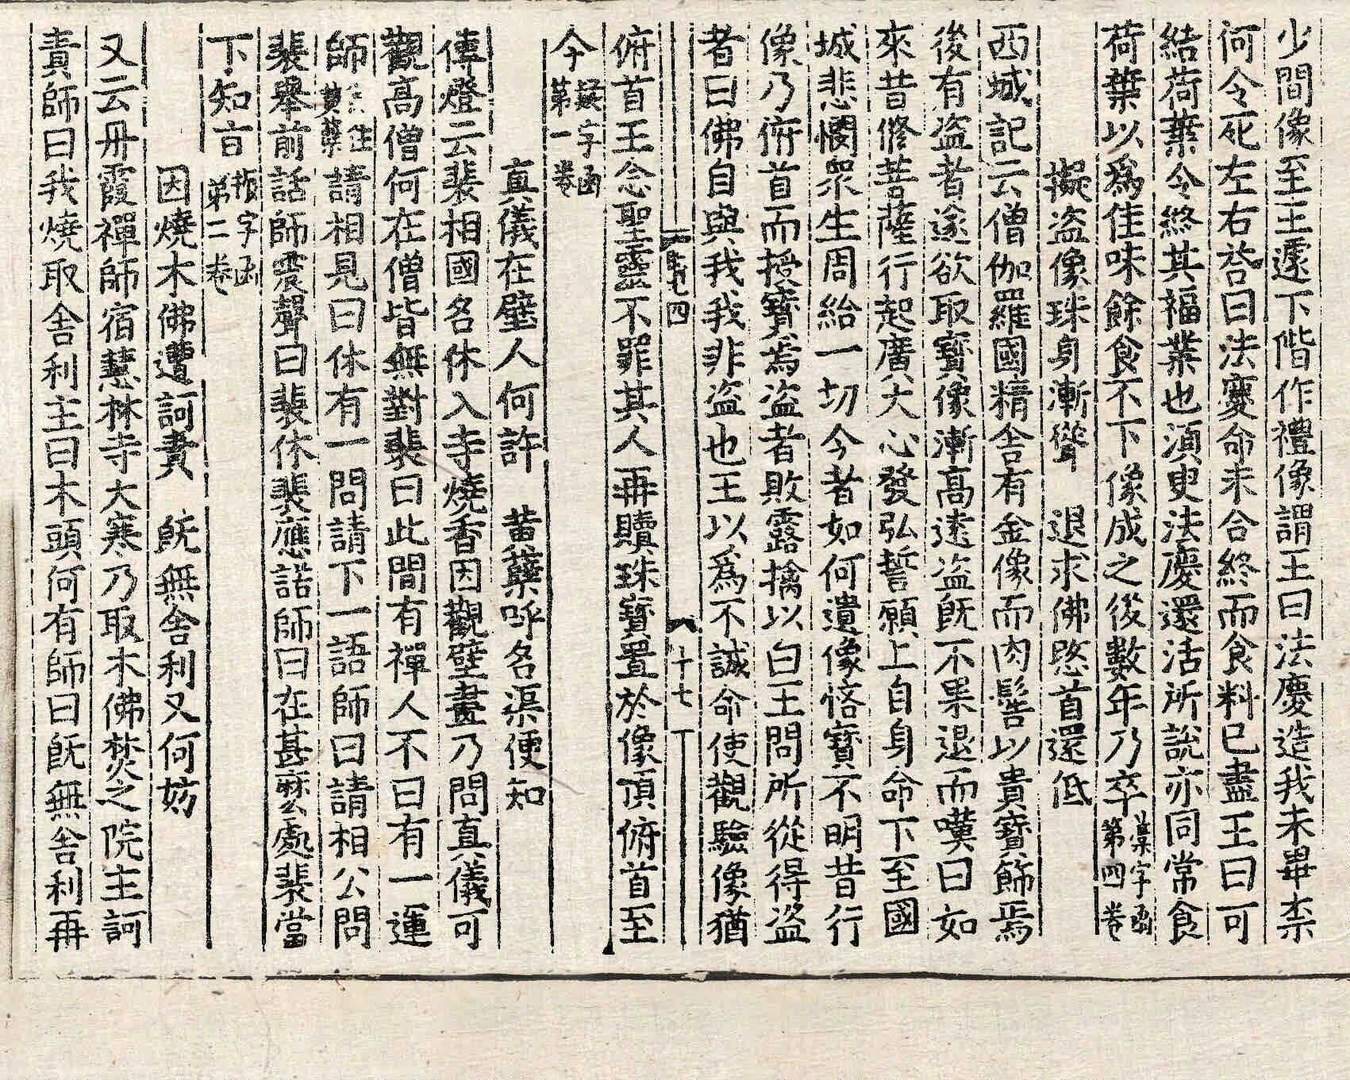 少間像至王遽下階作禮像謂王曰法慶造我未畢柰
何令死左右答曰法慶命未合終而食料已盡王曰可
結荷葉令終其福業也湏臾法慶還活所說亦同常食
荷葉以爲佳味餘食不下像成之後數年乃卒 藁字函第四卷
擬盗像珠身漸聳 退求佛愍首還低
西域記云僧伽羅國精舍有金像而肉髻以貴寶飾焉
後有盗者遂欲取寶像漸高逺盗旣不果退而嘆曰如
來昔修菩薩行起廣大心發弘誓願上自身命下至國
城悲愍衆生周給一切今者如何遺像悋寶不明昔行
像乃俯首而授寶焉盗者敗露擒以白王問所從得盗
者曰佛自與我我非盗也王以爲不誠命使觀驗像猶
四 十七
俯首王念聖靈不罪其人再贖珠寶置於像頂俯首至
今 擬字函第一卷
真儀在壁人何許 黄蘗呼名渠便知
傳燈云裴相國名休入寺燒香因觀壁畫乃問真儀可
觀高僧何在僧皆無對裴曰此間有禪人不曰有一運
師 黄蘗住 請相見曰休有一問請下一語師曰請相公問
裴舉前話師震聲曰裴休裴應諾師曰在甚麽處裴當
下知旨 振字函第二卷
因燒木佛遭訶責 旣無舍利又何妨
又云丹霞禪師宿慧林寺大寒乃取木佛焚之院主訶
責師曰我燒取舍利主曰木頭何有師曰旣無舍利再